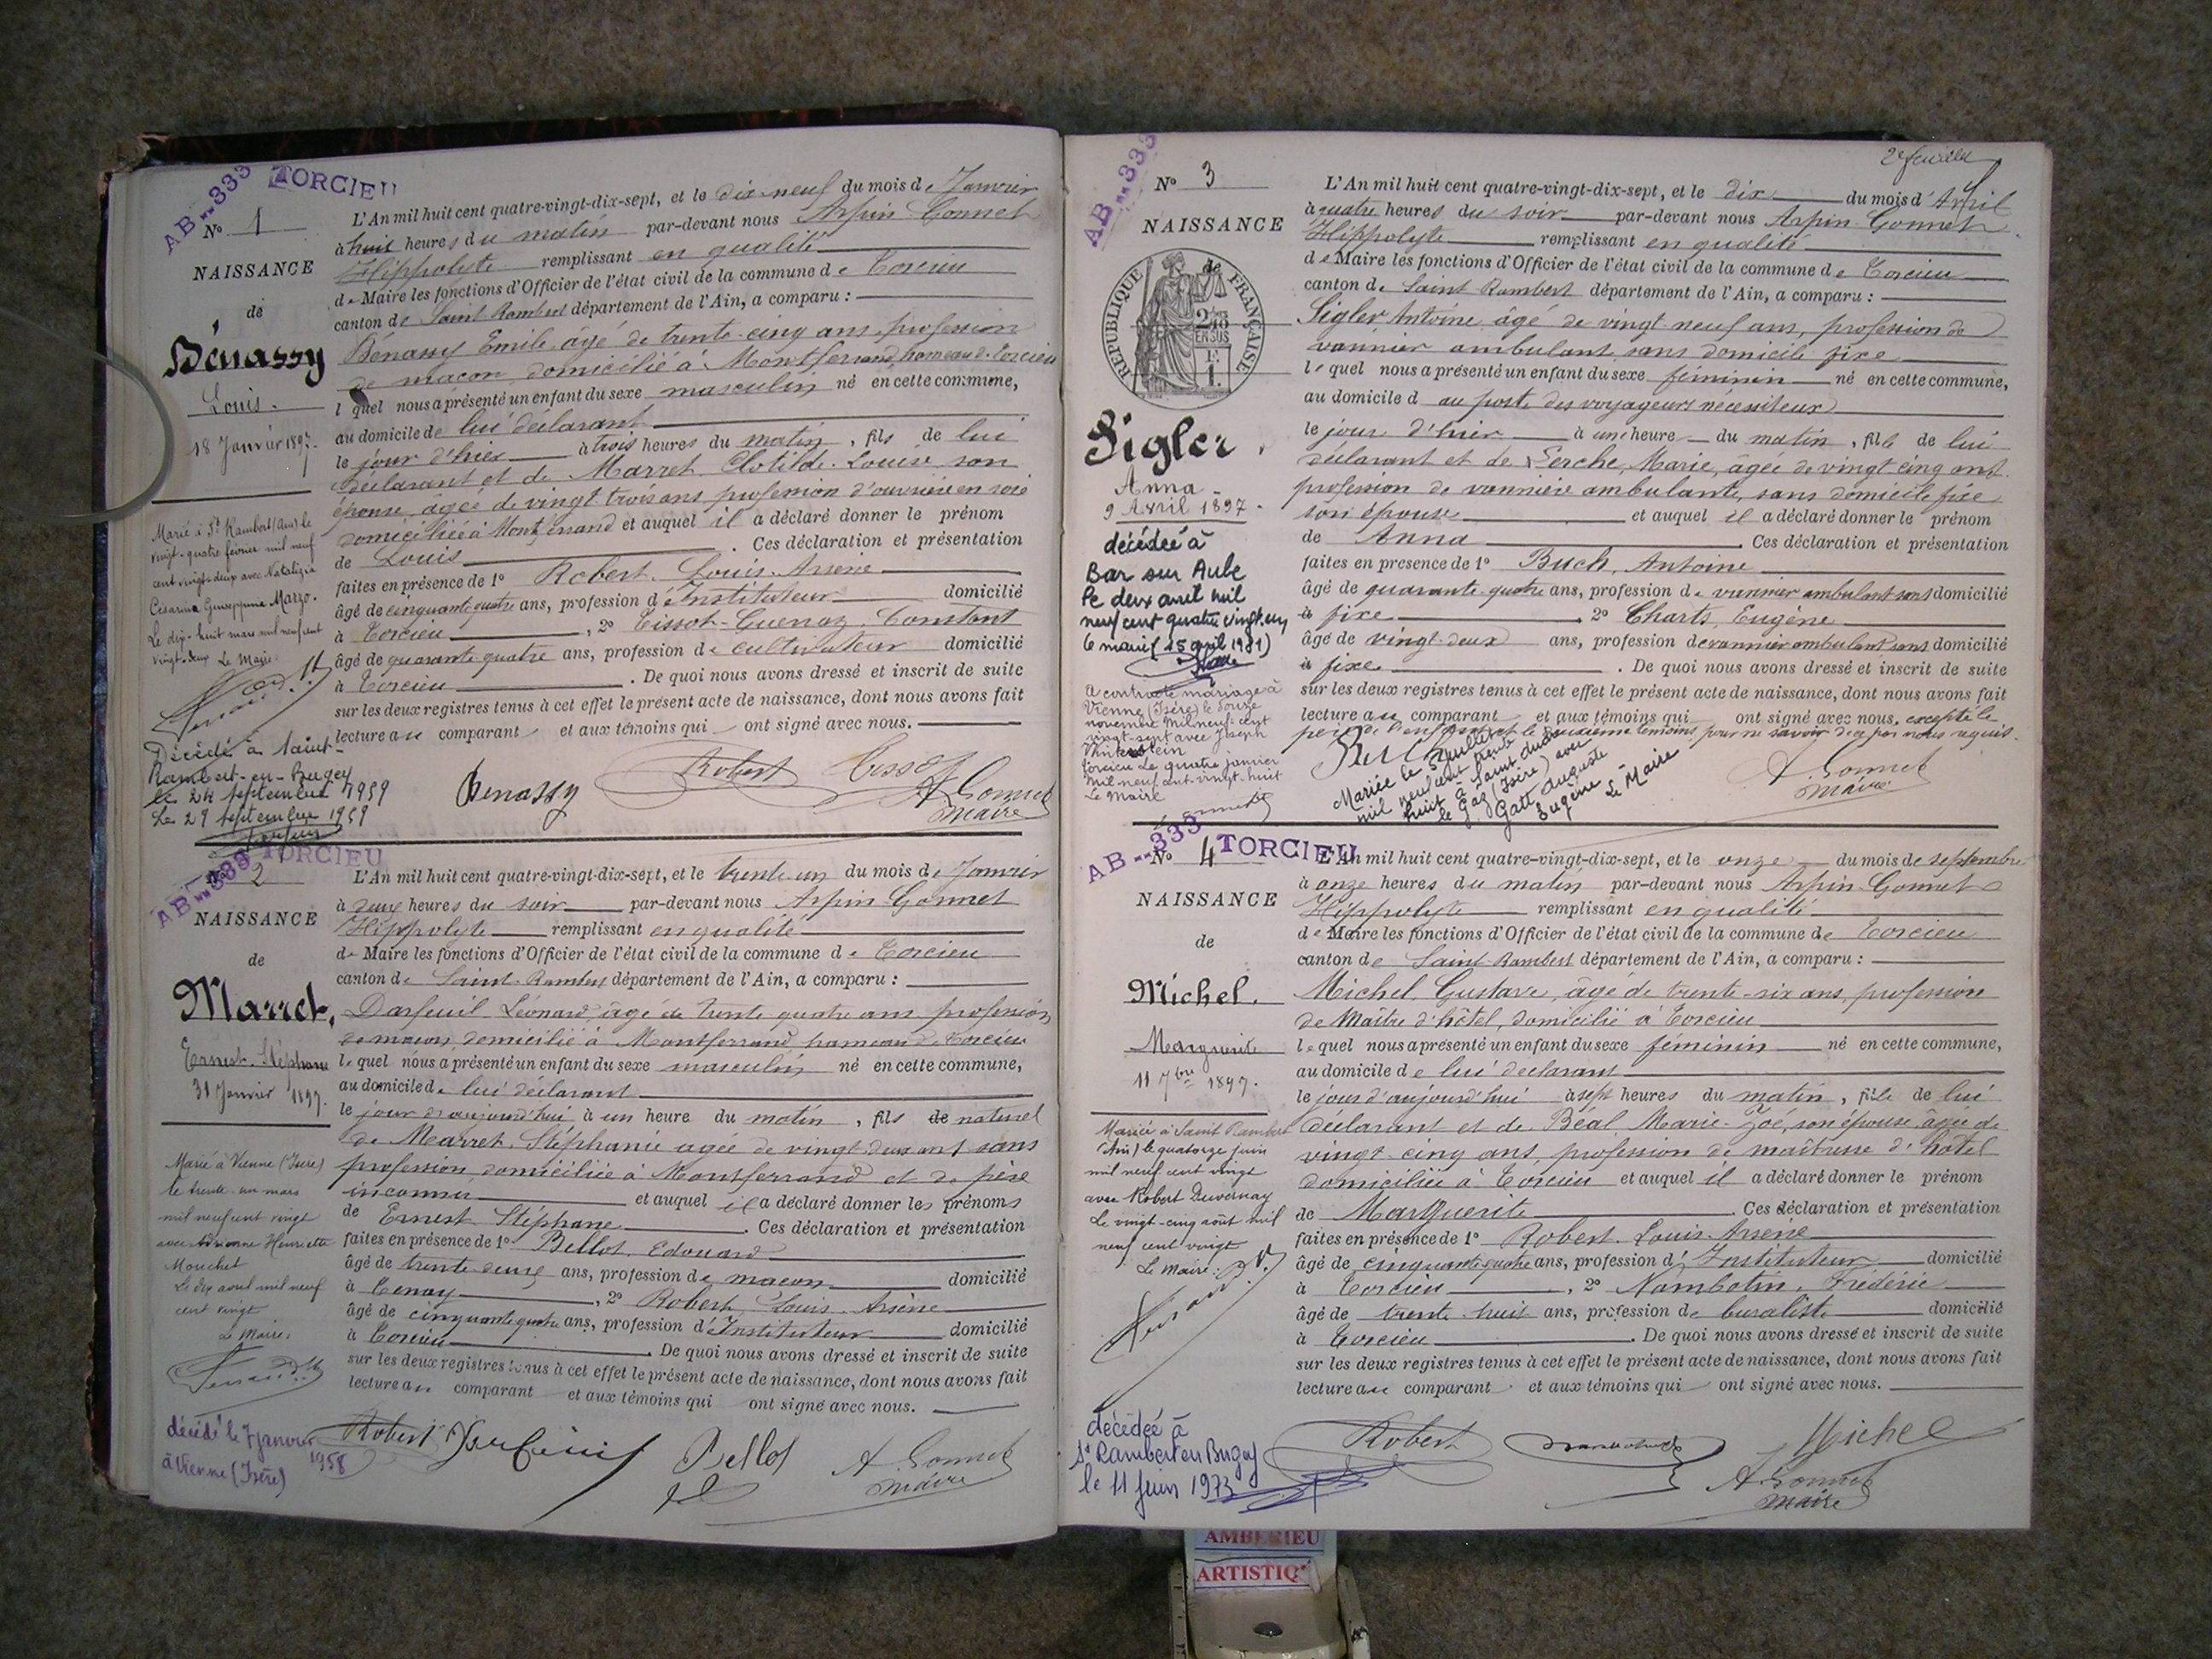 AB--333 TORCIEU
N° 1
NAISSANCE
de
Bénassy
Louis.
18 Janvier 1897.
Marié à St Rambert (Ain) le
vingt-quatre février mil neuf
cent vingt-deux avec Natalizia
Cesarina Giuseppina Marzo.
Le dix-huit mars mil neuf cent
vingt-deux Le Maire
Décédé à Saint-
Rambert-en-Bugey
le 24 septembre 1959
Le 29 septembre 1959
L'An mil huit cent quatre-vingt-dix-sept, et le dix-neuf du mois de Janvier
à huit heures du matin par-devant nous Arpin-Gonnet
Hippolyte remplissant en qualité
de Maire les fonctions d'Officier de l'état civil de la commune de Torcieu
canton de Saint Rambert département de l'Ain, a comparu :
Bénassy Emile âgé de trente-cinq ans, profession
de maçon domicilié à Montferrand hameau de Torcieu
lequel nous a présenté un enfant du sexe masculin né en cette commune,
au domicile de lui déclarant
le jour d'hier à trois heures du matin, fils de lui
déclarant et de Marret Clotilde Louise son
épouse, âgée de vingt trois ans profession d'ouvrière en soie
domiciliée à Montferrand et auquel il a déclaré donner le prénom
de Louis. Ces déclaration et présentation
faites en présence de 1° Robert, Louis-Arsène
âgé de cinquante quatre ans, profession d'Instituteur domicilié
à Torcieu, 2° Tissot-Guenaz, Constant
âgé de quarante quatre ans, profession de cultivateur domicilié
à Torcieu. De quoi nous avons dressé et inscrit de suite
sur les deux registres tenus à cet effet le présent acte de naissance, dont nous avons fait
lecture au comparant et aux témoins qui ont signé avec nous.
Benassy Robert Tissot A. Gonnet
maire
AB--333 TORCIEU
2
NAISSANCE
de
Marret,
Ernest-Stéphane
31 Janvier 1897.
Marié à Vienne (Isère)
le trente-un mars
mil neuf cent vingt
avec Adrienne Henriette
Mouchet
Le dix avril mil neuf
cent vingt
Le Maire:
décédé le 7 janvier
1958
à Vienne (Isère)
L'An mil huit cent quatre-vingt-dix-sept, et le trente un du mois de Janvier
à deux heures du soir par-devant nous Arpin Gonnet
Hippolyte remplissant en qualité
de Maire les fonctions d'Officier de l'état civil de la commune de Torcieu
canton de Saint-Rambert département de l'Ain, a comparu :
Darfeuil Léonard âgé de trente quatre ans profession
de maçon, domicilié à Montferrand, hameau de Torcieu
lequel nous a présenté un enfant du sexe masculin né en cette commune,
au domicile de lui déclarant
le jour d'aujourd'hui à un heure du matin, fils de naturel
de Marret, Stéphanie agée de vingt deux ans sans
profession, domiciliée à Montferrand et de père
inconnu et auquel il a déclaré donner les prénoms
de Ernest Stéphane. Ces déclaration et présentation
faites en présence de 1° Bellot, Edouard
âgé de trente deux ans, profession de maçon domicilié
à Tenay, 2° Robert, Louis-Arsène
âgé de cinquante quatre ans, profession d'Instituteur domicilié
à Torcieu. De quoi nous avons dressé et inscrit de suite
sur les deux registres tenus à cet effet le présent acte de naissance, dont nous avons fait
lecture au comparant et aux témoins qui ont signé avec nous.
Robert Darfeuil Bellot A. Gonnet
maire
2e feuillet
AB--333
N° 3
NAISSANCE
de
RÉPUBLIQUE FRANÇAISE
2/10 EN SUS
Sigler.
Anna
9 Avril 1897.
décédée à
Bar sur Aube
le deux avril mil
neuf cent quatre vingt un
(15 avril 1981)
a contracté mariage à
Vienne (Isère) le douze
novembre mil neuf cent
vingt-sept avec Joseph
Winterstein
Torcieu le quatre janvier
mil neuf cent vingt-huit
Le Maire
L'An mil huit cent quatre-vingt-dix-sept, et le dix du mois d'Avril
à quatre heures du soir par-devant nous Arpin-Gonnet
Hippolyte remplissant en qualité
de Maire les fonctions d'Officier de l'état civil de la commune de Torcieu
canton de Saint Rambert département de l'Ain, a comparu :
Sigler Antoine, âgé de vingt neuf ans, profession de
vannier ambulant, sans domicile fixe
lequel nous a présenté un enfant du sexe féminin né en cette commune,
au domicile d au poste des voyageurs nécessiteux
le jour d'hier à une heure du matin, fille de lui
déclarant et de Lerche, Marie, âgée de vingt cinq ans
profession de vannière ambulante, sans domicile fixe
son épouse et auquel il a déclaré donner le prénom
de Anna. Ces déclaration et présentation
faites en présence de 1° Buch, Antoine
âgé de quarante-quatre ans, profession de vannier ambulant sans domicilié
à fixe 2° Charts, Eugène
âgé de vingt-deux ans, profession de vannier ambulant sans domicilié
à fixe. De quoi nous avons dressé et inscrit de suite
sur les deux registres tenus à cet effet le présent acte de naissance, dont nous avons fait
lecture au comparant et aux témoins qui ont signé avec nous, excepté le
père de l'enfant et le deuxième témoins pour ne savoir de ce par nous requis.
Buch
Mariée le juillet
mil neuf cent trente
huit à Saint
le G. Gaz (Isère) avec
Gatt Auguste
Eugène Le Maire
A. Gonnet
maire
AB--333 TORCIEU
N° 4
NAISSANCE
de
Michel.
Marguerite
11 7bre 1897.
Mariée à Saint Rambert
(Ain) le quatorze juin
mil neuf cent vingt
avec Robert Duvernay
Le vingt-cinq août mil
neuf cent vingt
Le Maire:
décédée à
St Rambert en Bugey
le 11 juin 1973
L'An mil huit cent quatre-vingt-dix-sept, et le onze du mois de septembre
à onze heures du matin par-devant nous Arpin-Gonnet
Hippolyte remplissant en qualité
de Maire les fonctions d'Officier de l'état civil de la commune de Torcieu
canton de Saint-Rambert département de l'Ain, a comparu :
Michel, Gustave, âgé de trente-six ans, profession
de Maître d'hôtel, domicilié à Torcieu
lequel nous a présenté un enfant du sexe féminin né en cette commune,
au domicile de lui déclarant
le jour d'aujourd'hui à sept heures du matin, fille de lui
déclarant et de Béal Marie-Zoé, son épouse âgée de
vingt-cinq ans, profession de maîtresse d'hôtel
domiciliée à Torcieu et auquel il a déclaré donner le prénom
de Marguerite. Ces déclaration et présentation
faites en présence de 1° Robert-Louis-Arsène
âgé de cinquante quatre ans, profession d'Instituteur domicilié
à Torcieu, 2° Nambotin, Frédéric
âgé de trente-huit ans, profession de buraliste domicilié
à Torcieu. De quoi nous avons dressé et inscrit de suite
sur les deux registres tenus à cet effet le présent acte de naissance, dont nous avons fait
lecture au comparant et aux témoins qui ont signé avec nous.
Robert Michel
A. Gonnet
maire
AMBERIEU
ARTISTIQ